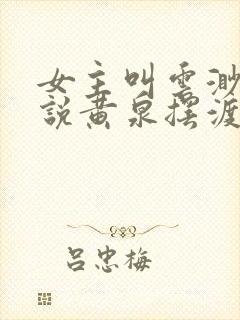 女主叫云渺
說黄泉摆渡
吕忠梅